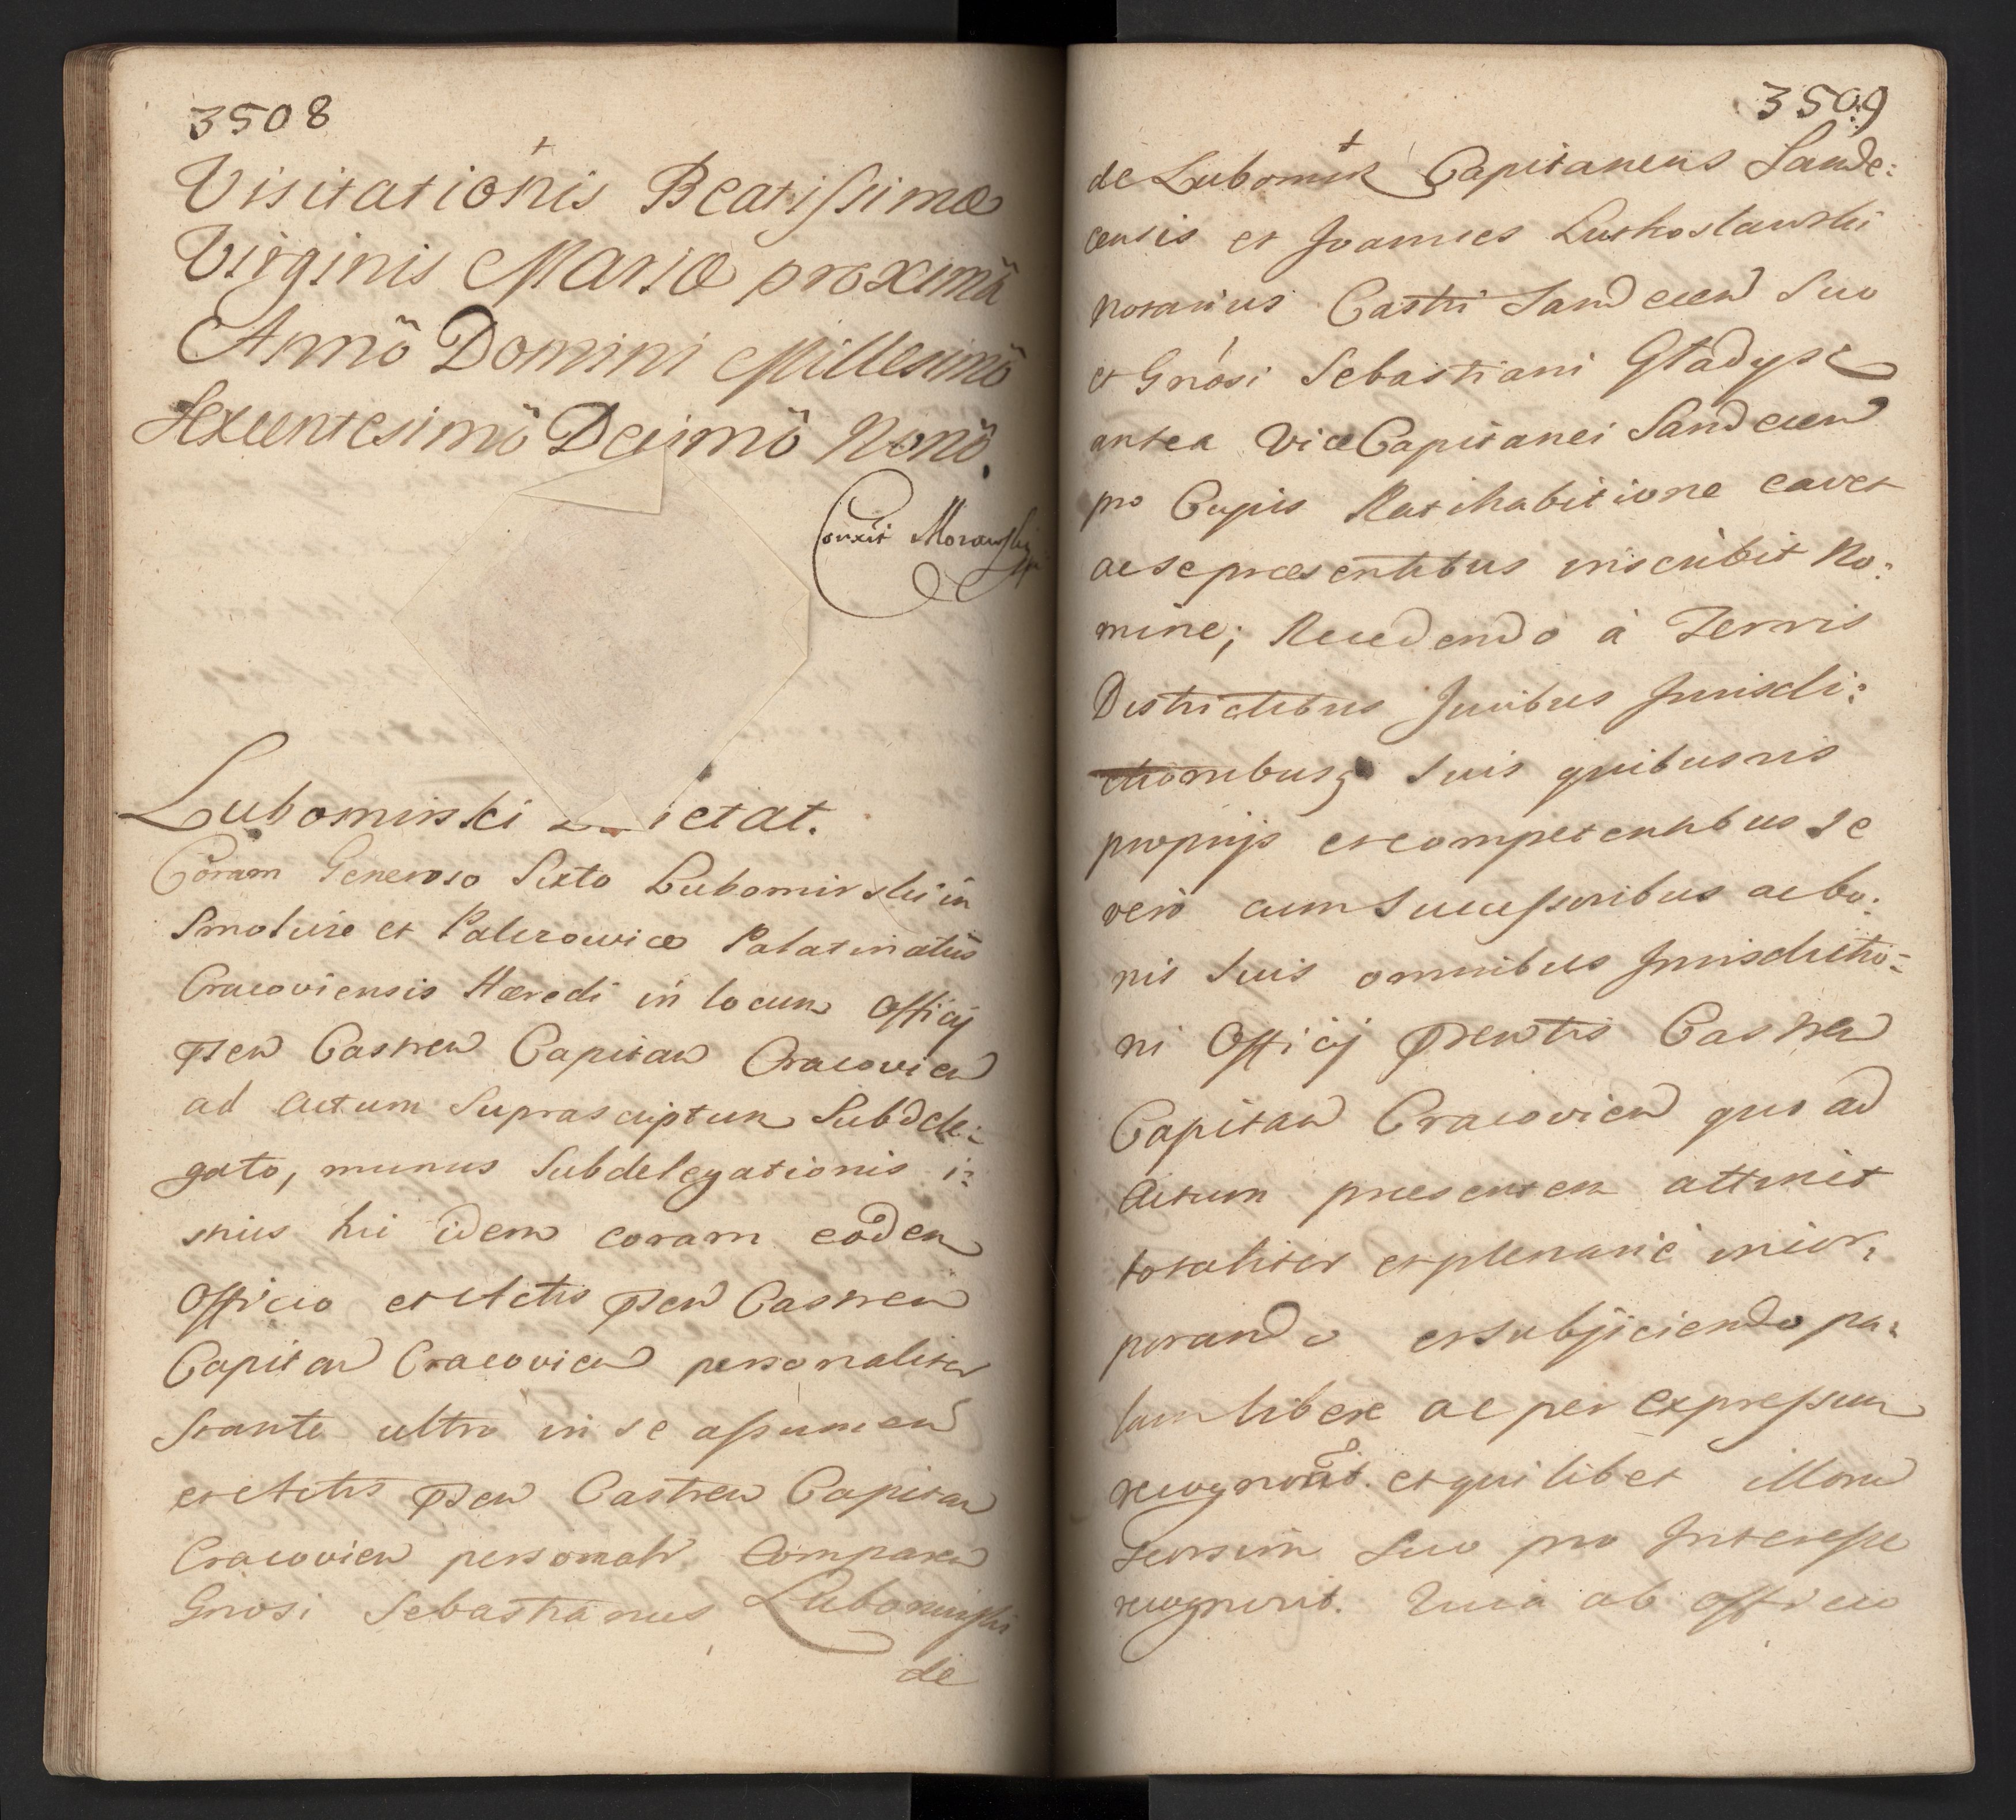 3508
Visitationis Beatissimæ
Virginis Mariæ proximâ
Annô Domini Millesimô
Sexcentesimô Decimô Nonô.
Conxit Morawski
Lubomirski ietat.
Coram Generoso Sixto Lubomirski in
Smolice et Palczowice Palatinatûs
Cracoviensis Hæredi in locum Officij
Castren Capitan Cracovien
ad Actum Suprascriptum Subdele:
gato, munus Subdelegationis i:
stius hic idem coram eôdem
Officio et Actis Castren
Capitan Cracovien personaliter
stante ultro in se assumen
et Actis Castren Capitan
Cracovien personalr. Comparen
Gnosi Sebastianus Lubomirski
de
3509
de Lubomirz Capitaneus Sande:
censis et Joannes Lutkoslawski
Notarius Castri Sandecen Suo
et Gnôsi Sebastiani Gładysz
antea ViceCapitanei Sandecen
pro Cujus Ratihabitione cavet
ac se præsentibus inscribit No:
mine; Recedendô à Terris
Districtibus Juribus Jurisdi:
ctionibusq suis quibusvis
proprijs et competentibus se
verô cum Successoribus ac bo:
nis Suis omnibus Jurisdictio:
ni Officij Prentis Castren
Capitan Cracovien quo ad
Actum præsentem attinet
totaliter et plenariè incor:
porando et subjiciendo pa:
lam libere ac per expressum
recognovit. et quilibet Illorum
seorsim Suo pro Interesse
recognovit. Quia ab officio